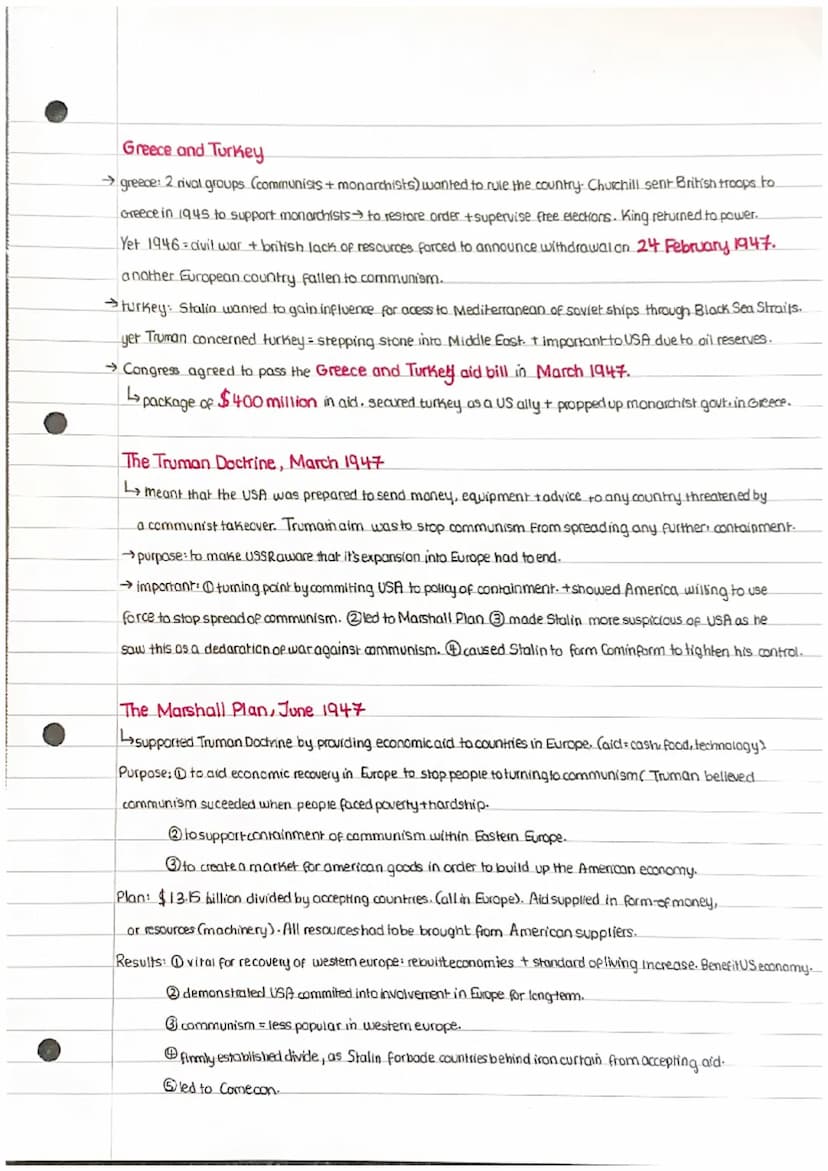 Greece and Turkey
→ greece: 2 rival groups (communists + monarchists) wanted to rule the country. Churchill sent British troops to
Greece in 1945 to support monarchists → to restore order + supervise free elections. King returned to power.
Yet 1946 = civil war + british lack of resources forced to announce withdrawal on 24 February 1947.
another European country fallen to communism.
→ turkey: Stalin wanted to gain influence for acess to Mediterranean of soviet ships through Black Sea Straits.
yet Truman concerned turkey = stepping stone into Middle East. + important to USA due to oil reserves.
→ Congress agreed to pass the Greece and Turkey aid bill in March 1947.
↳ package of $400 million in aid. secured turkey as a US ally + propped up monarchist govt. in Greece.
The Truman Doctrine, March 1947
↳ meant that the USA was prepared to send money, equipment + advice to any country threatened by
a communist takeover. Trumain aim was to stop communism from spreading any further: containment.
→ purpose: to make USSR aware that it's expansion into Europe had to end.
→ important: ① turning point by commiting USA to policy of containment. + showed America willing to use
force to stop spread of communism. ② led to Marshall Plan ③ made Stalin more suspicious of USA as he
saw this as a declaration of war against communism. ④ caused Stalin to form Cominform to tighten his control.
The Marshall Plan, June 1947
↳ supported Truman Doctrine by providing economic aid to countries in Europe. (aid = cash, food, technology)
Purpose: ① to aid economic recovery in Europe to stop people to turning to communism ( Truman believed
communism suceeded when people faced poverty + hardship.
② to support containment of communism within Eastern Europe.
③ to create a market for american goods in order to build up the American economy.
Plan: $13.15 billion divided by accepting countries. (all in Europe). Aid supplied in form of money,
or resources (machinery). All resources had to be brought from American suppliers.
Results: ① vital for recovery of western europe: rebuilt economies + standard of living increase. Benefit US economy.
② demonstrated USA commited into involvement in Europe for long-term.
③ communism = less popular in western europe.
④ firmly established divide, as Stalin forbade countries behind iron curtain from accepting aid.
⑤ led to Comecon.